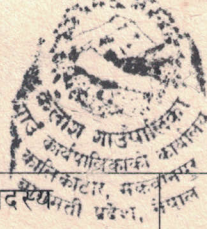 कैलाश गाउँपालिका
गाउँ कार्यपालिकाको कार्यालय
कालिकाटार, मकवानपुर
बागमती प्रदेश, नेपाल
दस्य